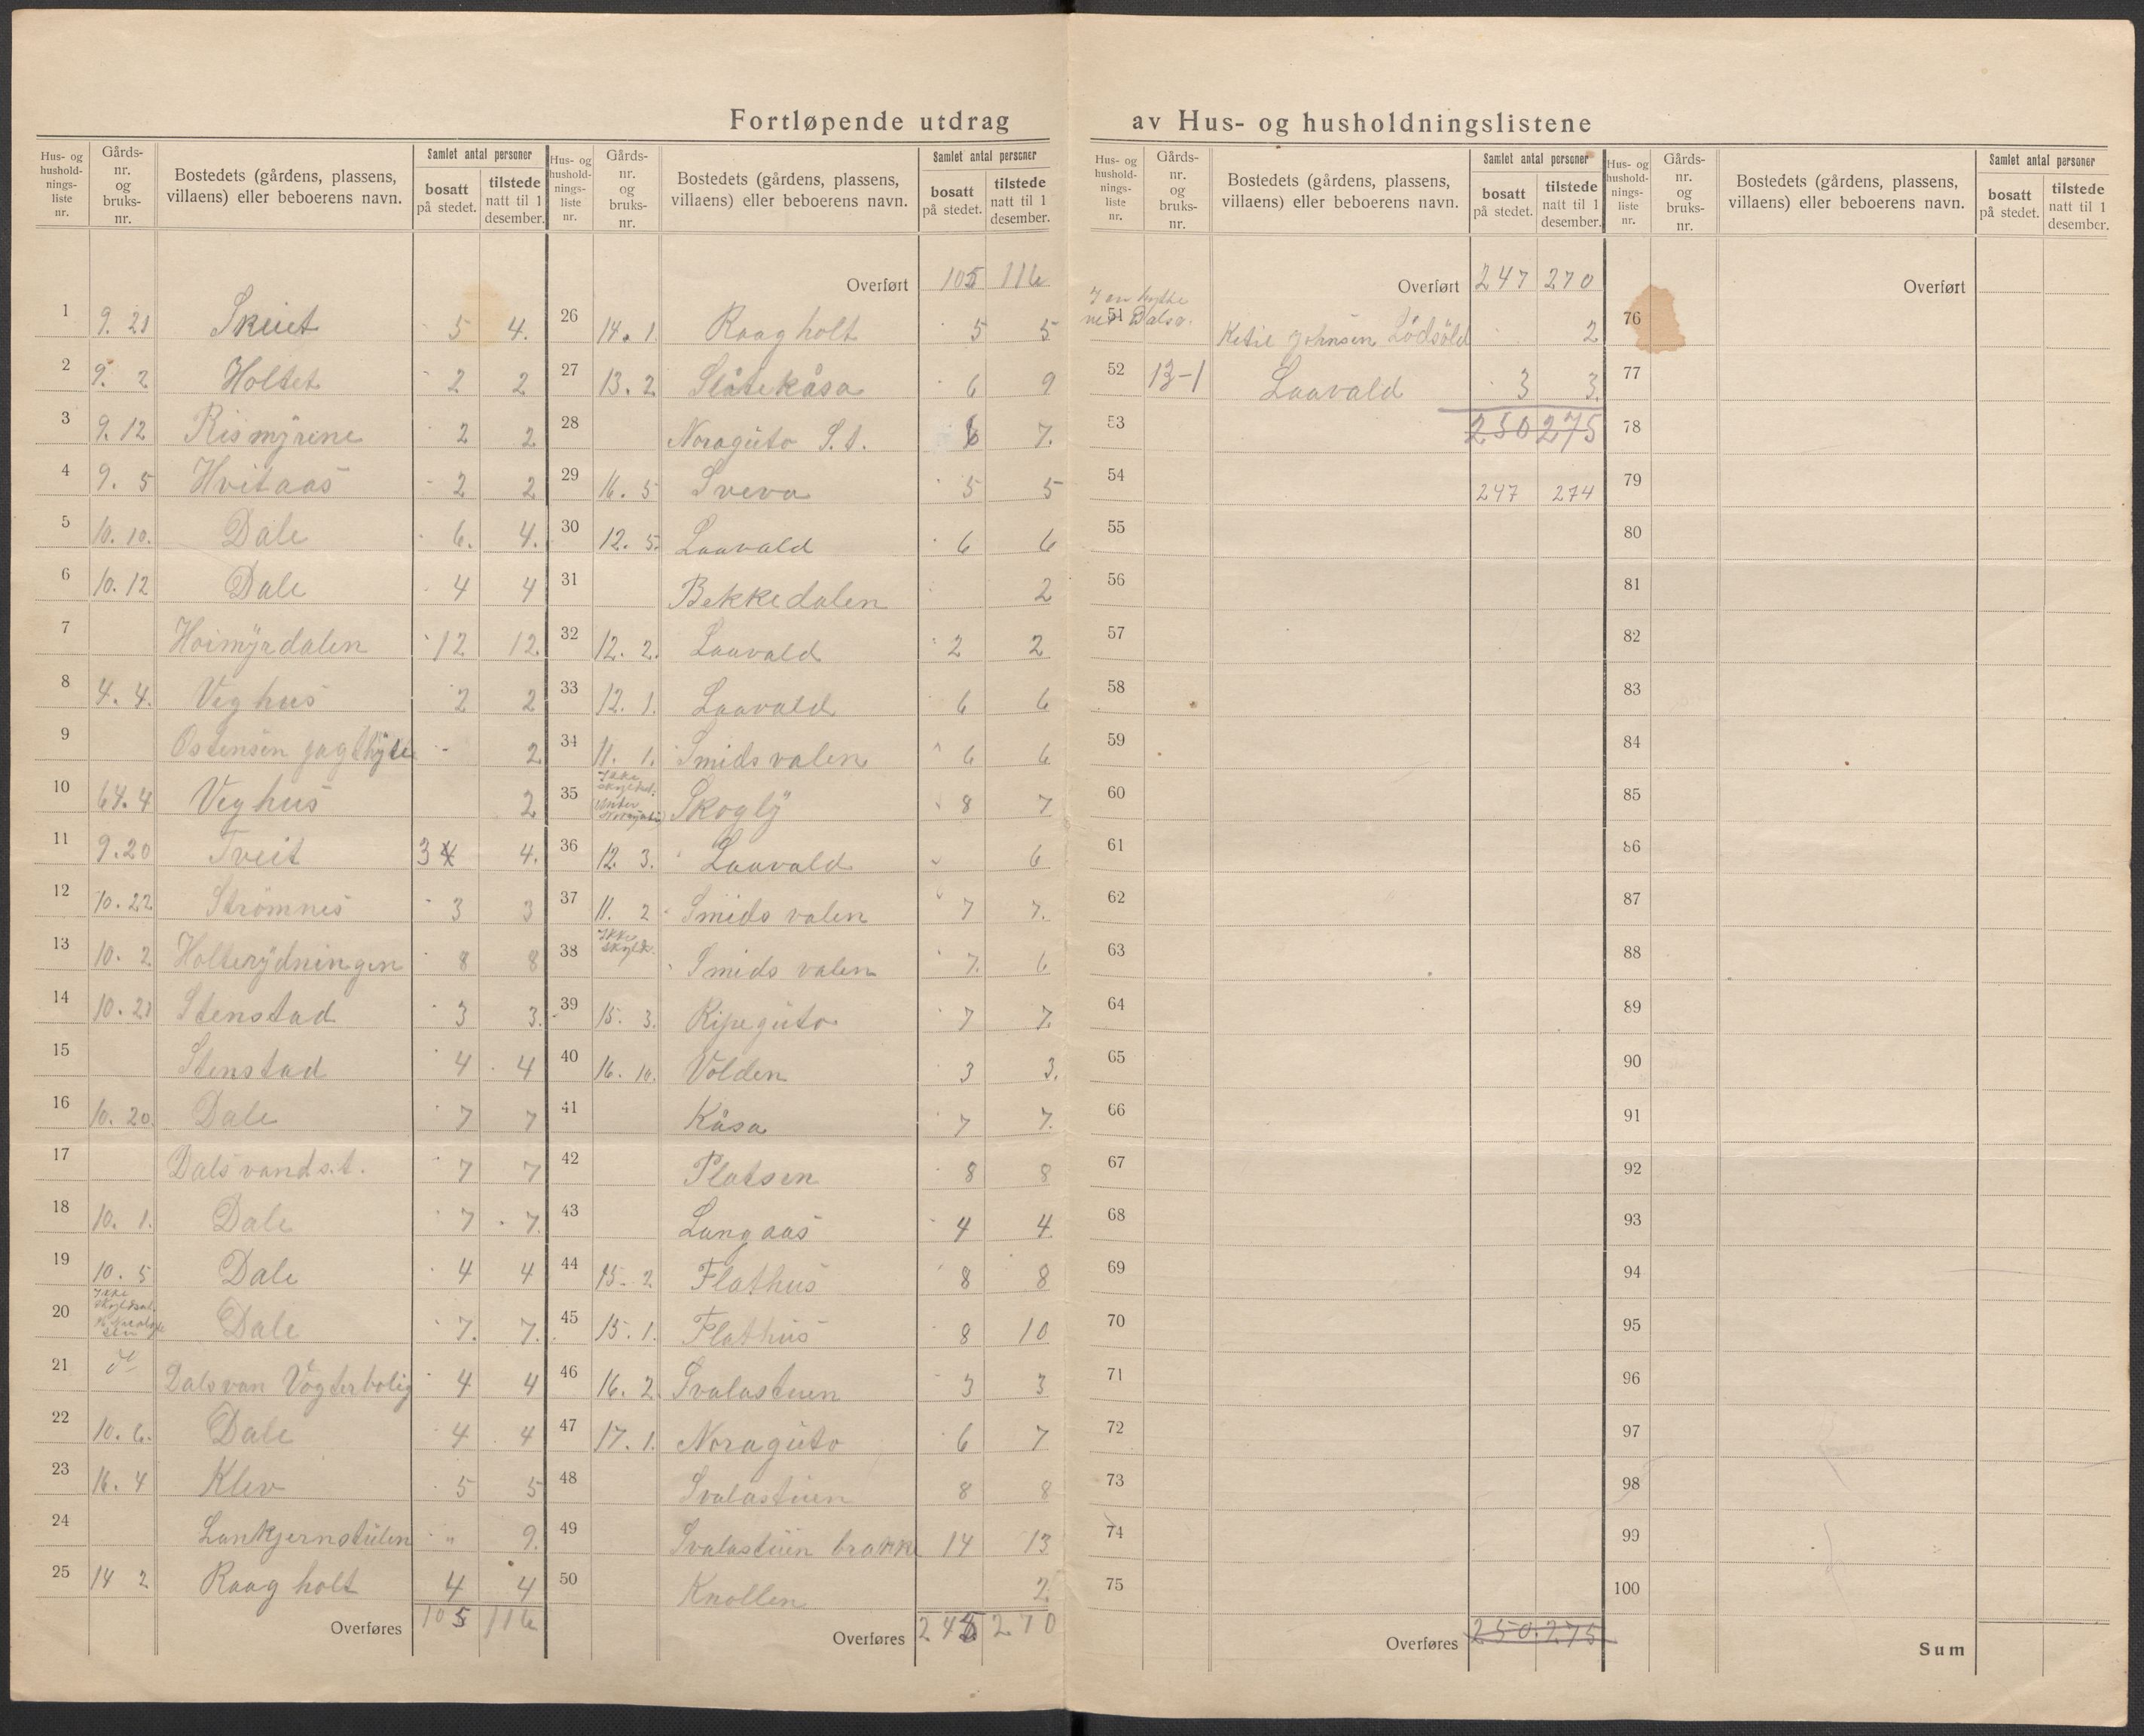 Fortløpende utdrag av Hus- og husholdningslistene
Hus- og hushold-nings-liste nr. Gårds-nr. og bruks-nr. Bostedets (gårdens, plassens, villaens) eller beboerens navn. Samlet antal personer bosatt på stedet. tilstede natt til 1 desember.
1 9. 21 Skuet 5 4.
2 9. 2 Holtet 2 2
3 9. 12 Rismyrene 2 2
4 9. 5 Hvitaas 2 2
5 10. 10. Dale 6. 4.
6 10. 12 Dale 4 4
7 Hoimyrdalen 12 12
8 4. 4. Veghus 2 2
9 Ostensen jagthytte - 2
10 64. 4 Veghus 2
11 9. 20 Tveit 3 4 4.
12 10. 22 Strømnes 3 3
13 10. 2 Holterydningen 8 8
14 10. 21 Stenstad 3 3.
15 Stenstad 4 4
16 10. 20. Dale 7 7
17 Dalsvand s.t. 7 7
18 10. 1. Dale 7 7.
19 10. 5 Dale 4 4
20 Ikke Dale 7. 7.
21 Dalsvan Vogterbolig 4 4
22 10. 6. Dale 4 4
23 16. 4 Klev 5 5
24 Lankjernstulen " 9.
25 14 2 Raagholt 4 4
Overføres 105 116
Hus- og hushold-nings-liste nr. Gårds-nr. og bruks-nr. Bostedets (gårdens, plassens, villaens) eller beboerens navn. Samlet antal personer bosatt på stedet. tilstede natt til 1 desember.
Overført 105 116
26 14. 1. Raagholt 5 5
27 13. 2. Slåtekåsa 6 9
28 Noraguto S.t. 6 7.
29 16. 5 Sveva 5 5
30 12. 5. Laavald 6 6
31 Bekkedalen 2
32 12. 2. Laavald 2 2
33 12. 1. Laavald 6 6
34 11. 1. Smidsvalen 6 6
35 Ikke Skogly 8 7
36 12. 3. Laavald 6
37 11. 2 Smidsvalen 7 7.
38 Ikke skyldt. Smidsvalen 7. 6
39 15. 3. Ripeguto 7 7.
40 16. 10. Volden 3 3.
41 Kåsa 7 7.
42 Platsen 8 8
43 Langaas 4 4
44 15. 2 Flathus 8 8
45 15. 1. Flathus 8 10
46 16. 2. Svalastuen 3 3
47 17. 1. Noraguto 6 7
48 Svalastuen 8 8
49 Svalastuen brakke 14 13
50 Knollen 2.
Overføres 270
Hus- og hushold-nings-liste nr. Gårds-nr. og bruks-nr. Bostedets (gårdens, plassens, villaens) eller beboerens navn. Samlet antal personer bosatt på stedet. tilstede natt til 1 desember.
Overført 247 270
I en hytte
51 ved Dalsv. Ketil Johnsen 2
52 13-1 Laavald 3 3.
53 250 275
54 247 274
55
56
57
58
59
60
61
62
63
64
65
66
67
68
69
70
71
72
73
74
75
Overføres 250. 275
Hus- og hushold-nings-liste nr. Gårds-nr. og bruks-nr. Bostedets (gårdens, plassens, villaens) eller beboerens navn. Samlet antal personer bosatt på stedet. tilstede natt til 1 desember.
Overført
76
77
78
79
80
81
82
83
84
85
86
87
88
89
90
91
92
93
94
95
96
97
98
99
100
Sum